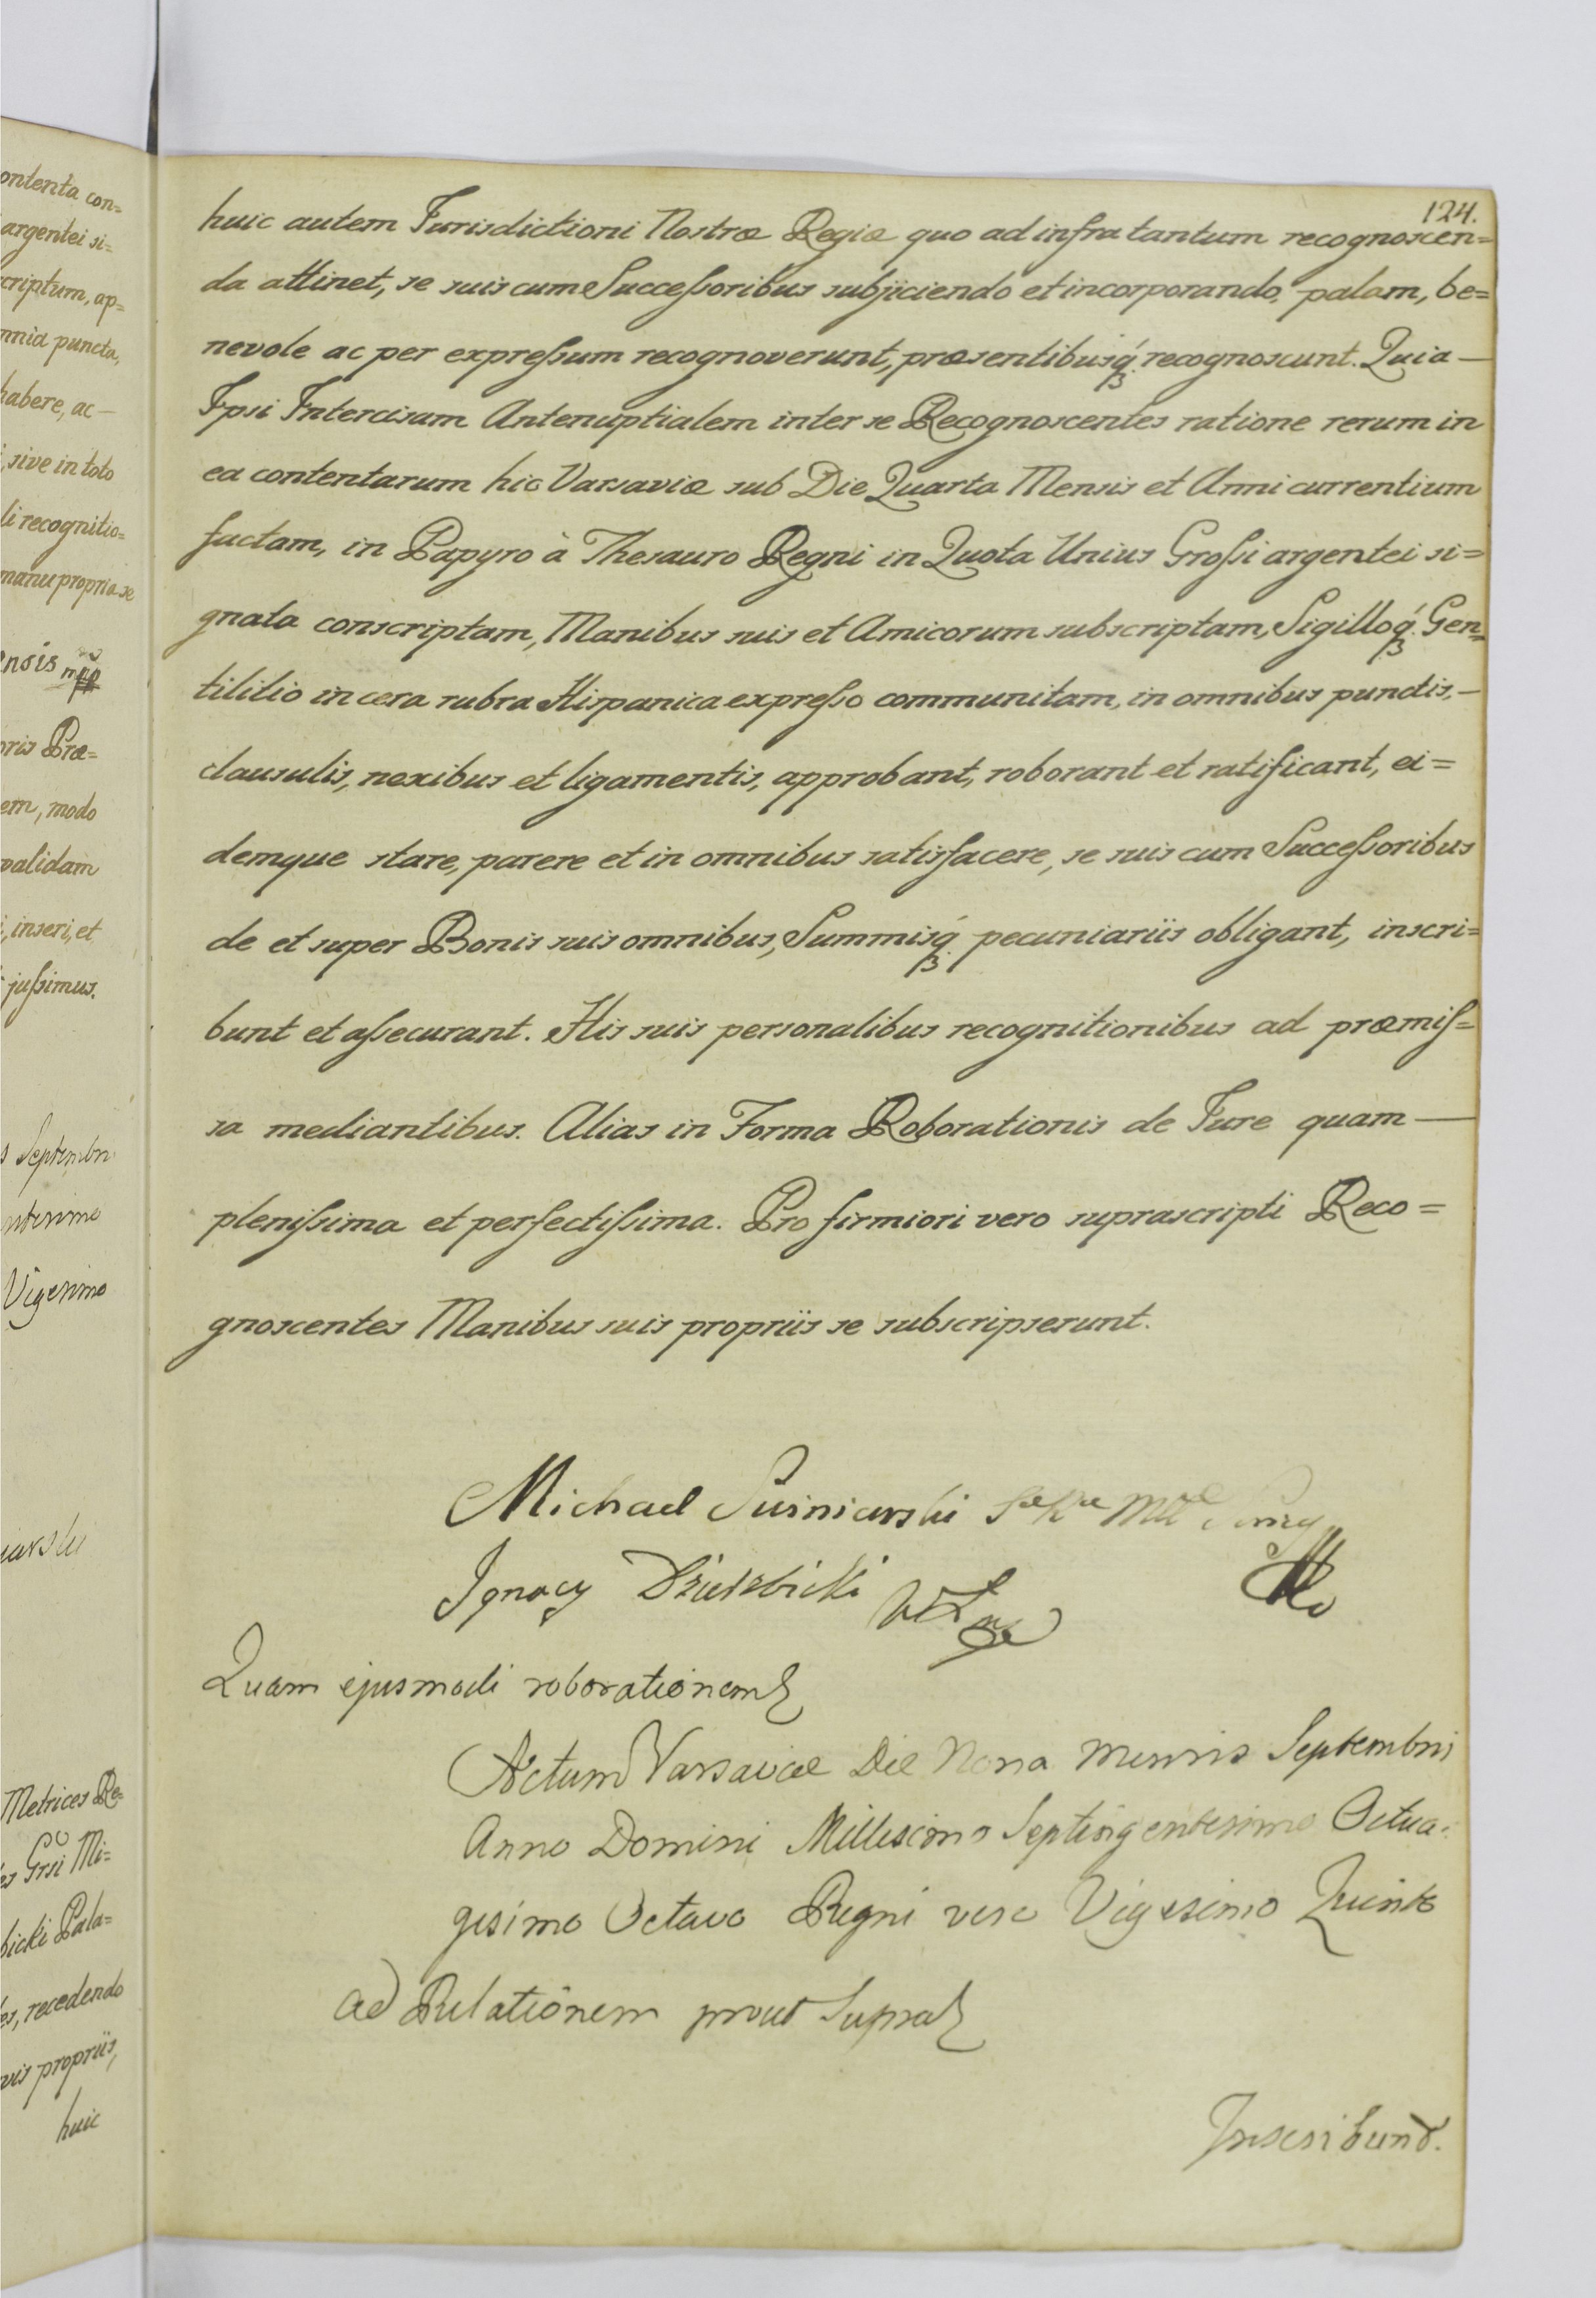 ontenta con=
argentei si=
criptum, ap=
mnia puncta,
habere, ac —
, sive in toto
li recognitio=
manu propria se
ensis mpp
oris Præ=
em, modo
validam
i, inseri, et
jussimus.
s Septembri
ntesimo
Vigesimo
iarski
Metrices Re=
es Grsi Mi=
bicki Pala=
es, recedendo
vis propriis,
huic
124.
huic autem Jurisdictioni Nostræ Regiæ quo ad infra tantum recognoscen=
da attinet, se suis cum Successoribus subjiciendo et incorporando, palam, be=
nevole ac per expressum recognoverunt, præsentibusq́ recognoscunt. Quia —
Ipsi Intercisam Antenuptialem inter se Recognoscentes ratione rerum in
ea contentarum hic Varsaviæ sub Die Quarta Mensis et Anni currentium
factam, in Papyro à Thesauro Regni in Quota Unius Grossi argentei si=
gnata conscriptam, Manibus suis et Amicorum subscriptam, Sigilloq́ Gen=
tilitio in cera rubra Hispanica expresso communitam, in omnibus punctis, —
clausulis, nexibus et ligamentis, approbant, roborant et ratificant, ei=
demque stare, parere et in omnibus satisfacere, se suis cum Successoribus
de et super Bonis suis omnibus, Summisq́ pecuniariis obligant, inscri=
bunt et assecurant. His suis personalibus recognitionibus ad præmis=
sa mediantibus. Alias in Forma Roborationis de Jure quam —
plenissima et perfectissima. Pro firmiori vero suprascripti Reco=
gnoscentes Manibus suis propriis se subscripserunt.
Michael
Ignacy
Quam ejusmodi roborationem
Actum Varsaviæ Die Nona Mensis Septembris
Anno Domini Millesimo Septingentesimo Octua=
gesimo Octavo Regni vero Vigesimo Quinto
ad Relationem prout Supra
Inscribund.